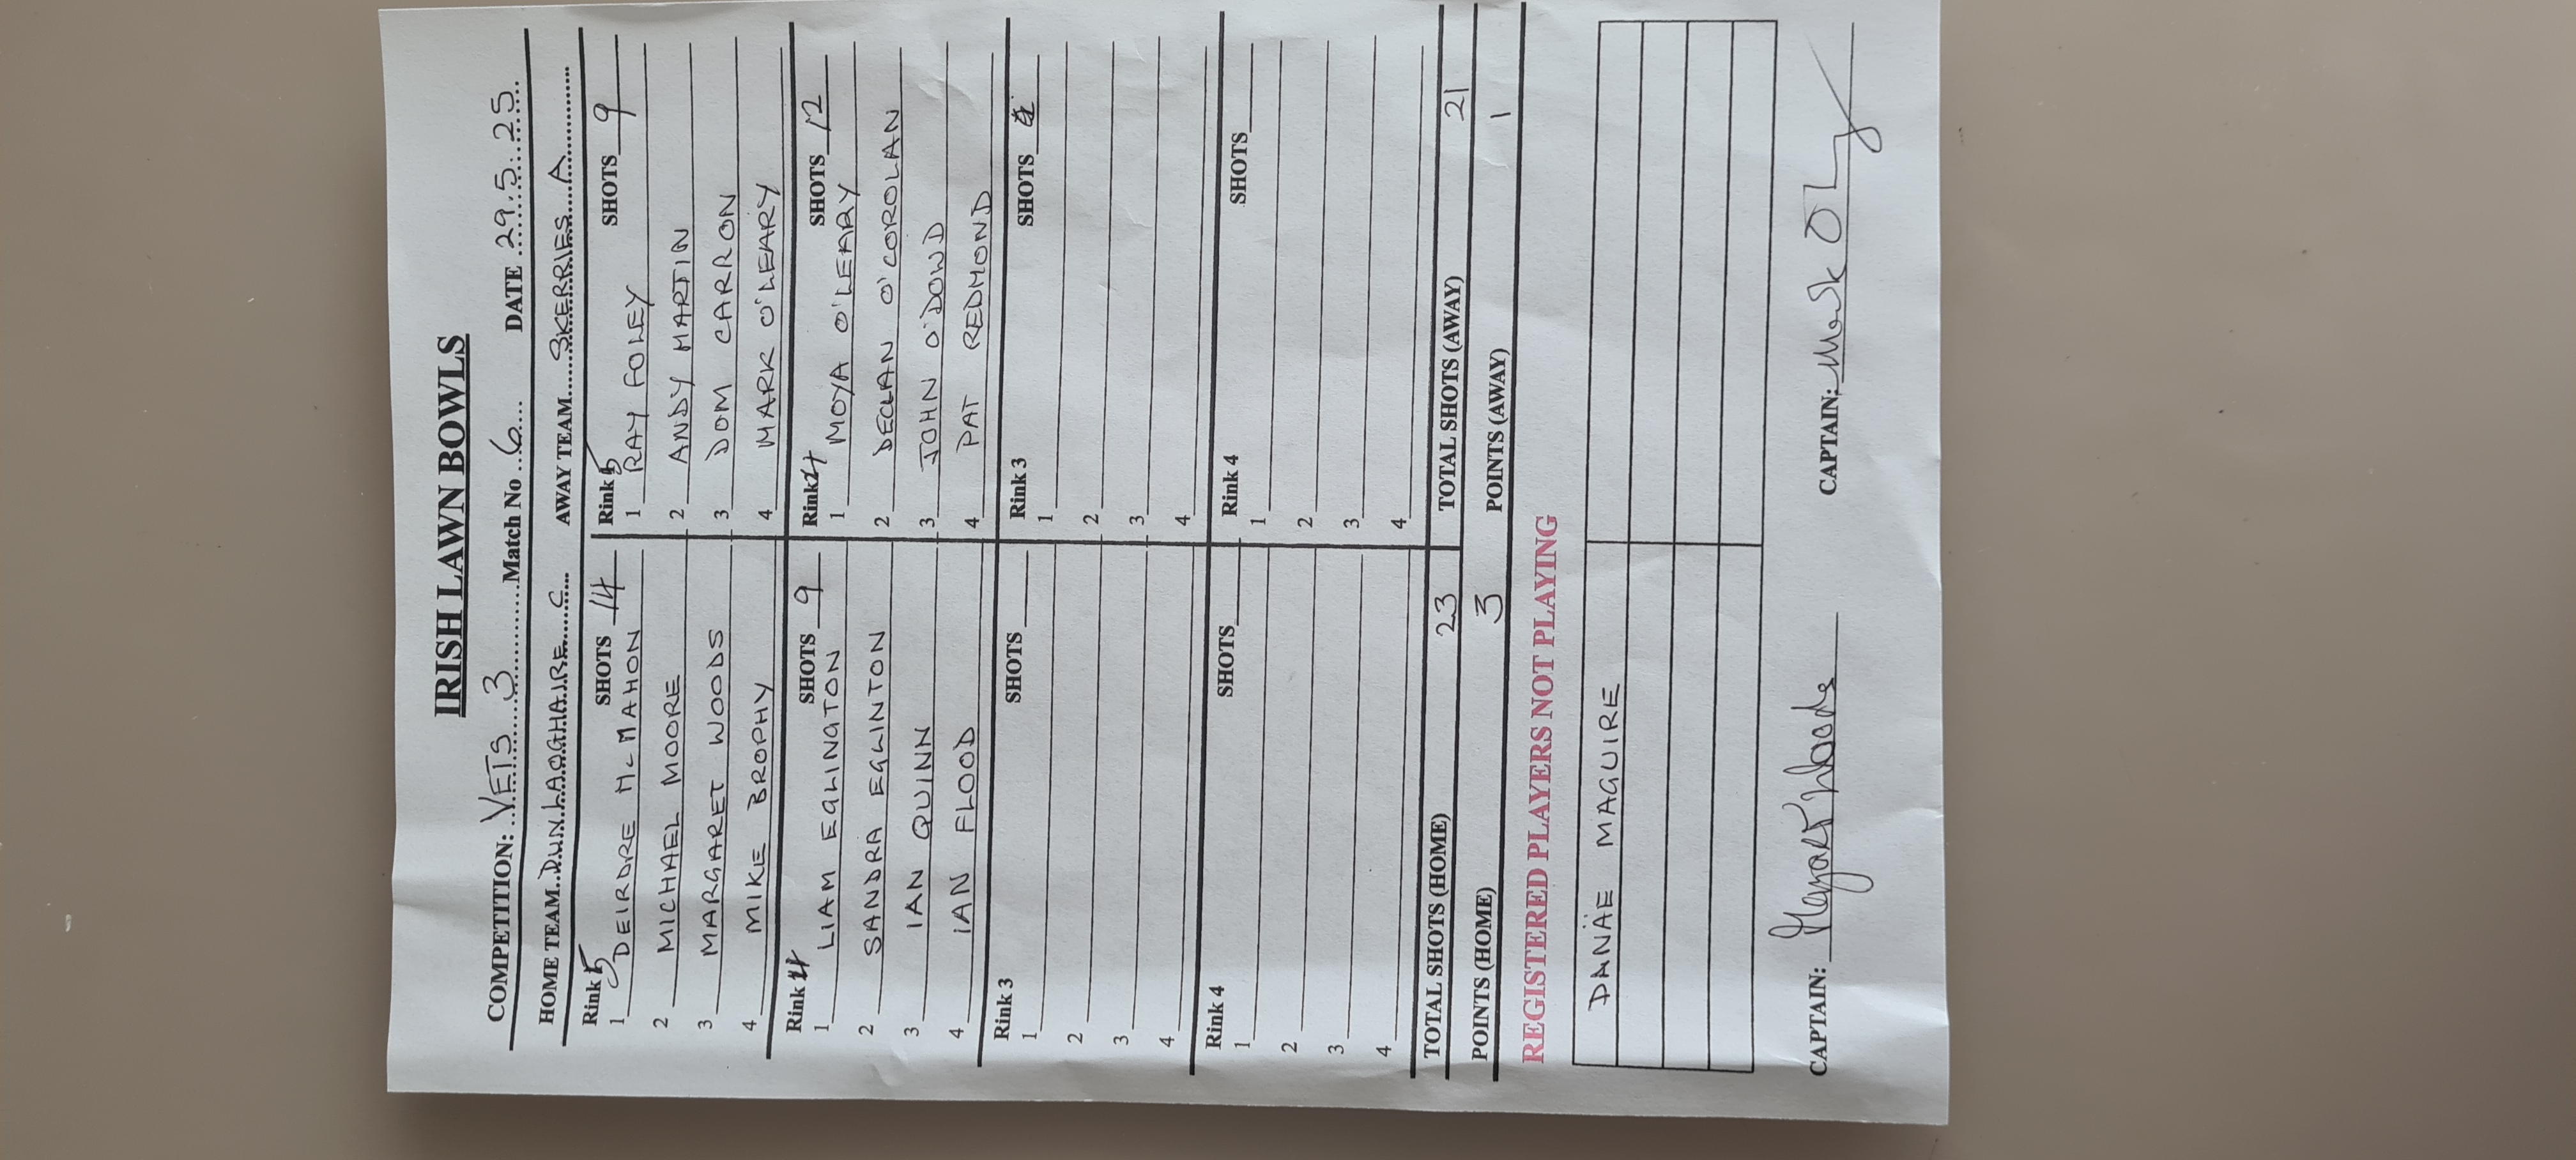 IRISH LAWN BOWLS
COMPETITION: VETS 3 Match No 6 DATE 29.5.25
HOME TEAM DUN LAOGHAIRE C AWAY TEAM SKERRIES A
Rink 5 SHOTS 14 Rink 5 SHOTS 9
1 DEIRDRE McMAHON 1 RAY FOLEY
2 MICHAEL MOORE 2 ANDY MARTIN
3 MARGARET WOODS 3 DOM CARRON
4 MIKE BROPHY 4 MARK O'LEARY
Rink 4 SHOTS 9 Rink 4 SHOTS 12
1 LIAM EGLINGTON 1 MOYA O'LEARY
2 SANDRA EGLINTON 2 DECLAN O'COROLAN
3 IAN QUINN 3 JOHN O'DOWD
4 IAN FLOOD 4 PAT REDMOND
Rink 3 SHOTS Rink 3 SHOTS
1 1
2 2
3 3
4 4
Rink 4 SHOTS Rink 4 SHOTS
1 1
2 2
3 3
4 4
TOTAL SHOTS (HOME) 23 TOTAL SHOTS (AWAY) 21
POINTS (HOME) 3 POINTS (AWAY) 1
REGISTERED PLAYERS NOT PLAYING
DANÄE MAGUIRE
CAPTAIN: Margaret Woods CAPTAIN: Mark O'L